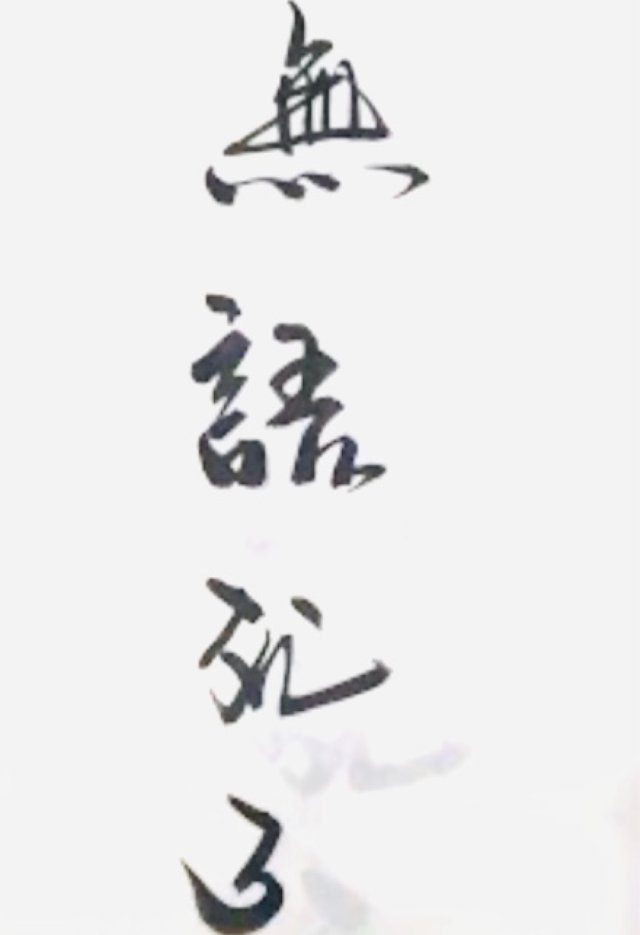 無語死了